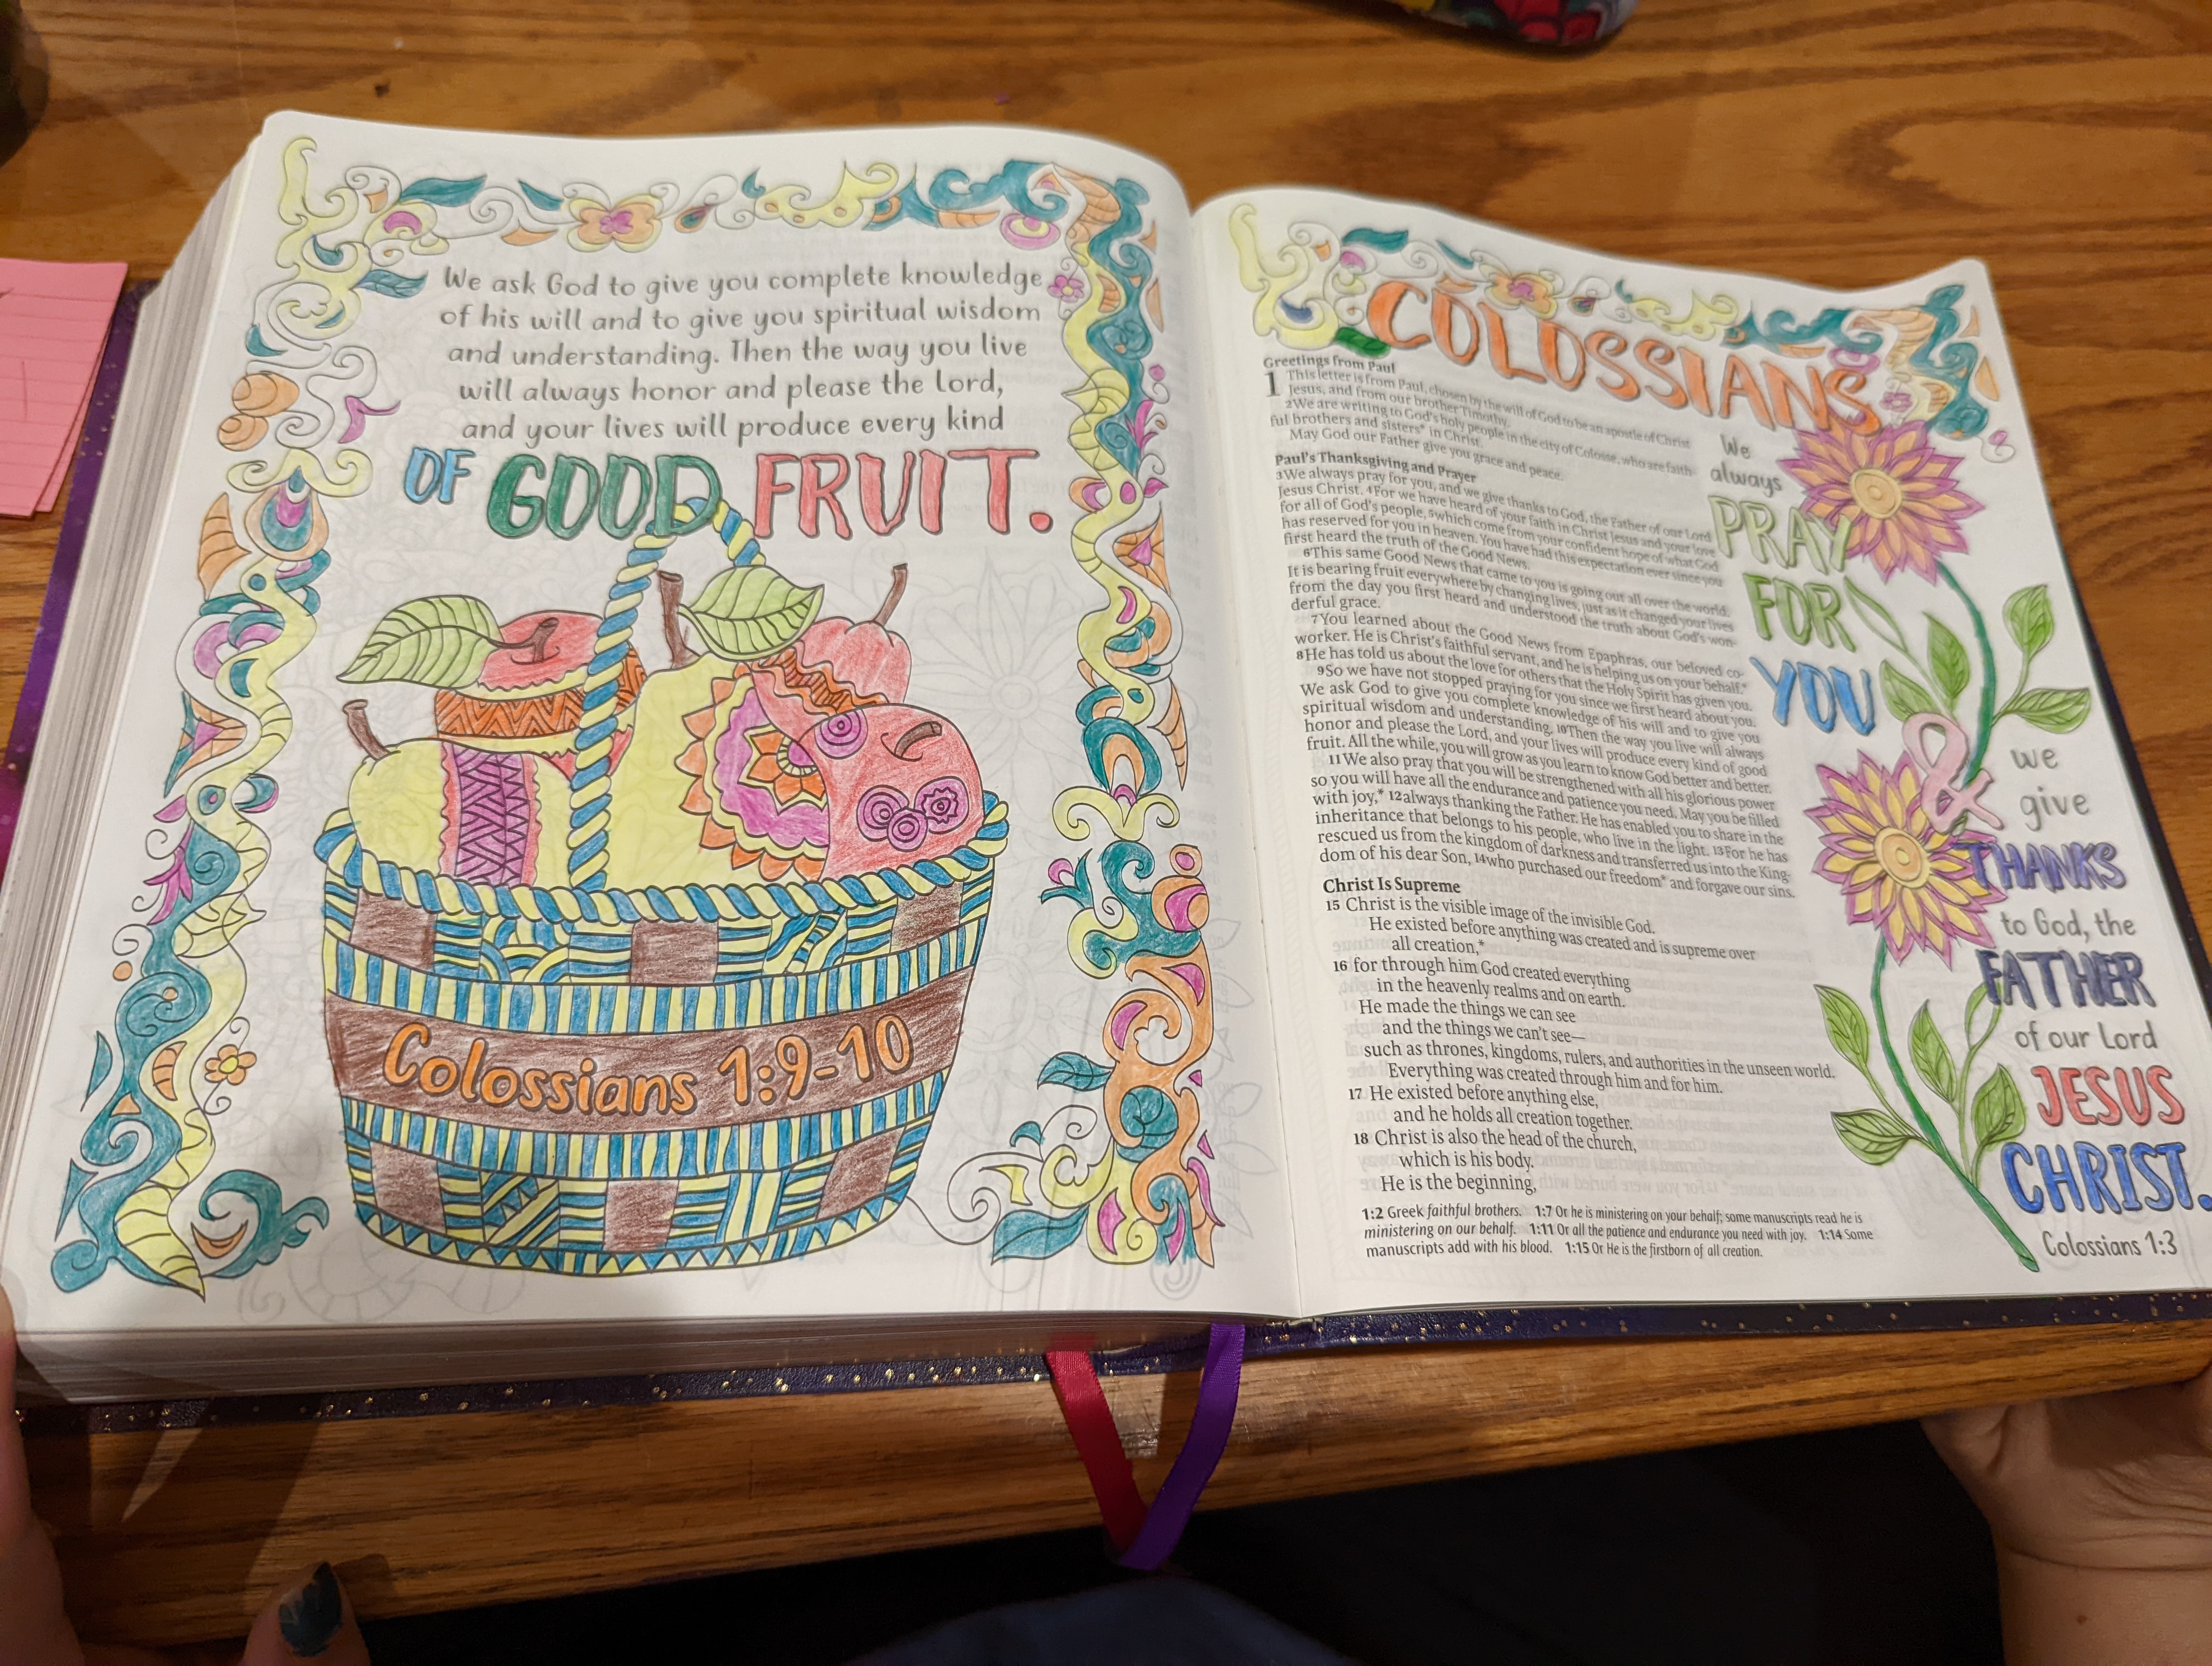 We ask God to give you complete knowledge
of his will and to give you spiritual wisdom
and understanding. Then the way you live
will always honor and please the Lord,
and your lives will produce every kind
OF GOOD FRUIT.
Colossians 1:9-10
COLOSSIANS
Greetings from Paul
1 This letter is from Paul, chosen by the will of God to be an apostle of Christ
Jesus, and from our brother Timothy.
2We are writing to God's holy people in the city of Colosse, who are faith-
ful brothers and sisters* in Christ.
May God our Father give you grace and peace.
Paul's Thanksgiving and Prayer
3We always pray for you, and we give thanks to God, the Father of our Lord
Jesus Christ. 4For we have heard of your faith in Christ Jesus and your love
for all of God's people, 5which come from your confident hope of what God
has reserved for you in heaven. You have had this expectation ever since you
first heard the truth of the Good News.
6This same Good News that came to you is going out all over the world.
It is bearing fruit everywhere by changing lives, just as it changed your lives
from the day you first heard and understood the truth about God's won-
derful grace.
7You learned about the Good News from Epaphras, our beloved co-
worker. He is Christ's faithful servant, and he is helping us on your behalf.*
8He has told us about the love for others that the Holy Spirit has given you.
9So we have not stopped praying for you since we first heard about you.
We ask God to give you complete knowledge of his will and to give you
spiritual wisdom and understanding. 10Then the way you live will always
honor and please the Lord, and your lives will produce every kind of good
fruit. All the while, you will grow as you learn to know God better and better.
11We also pray that you will be strengthened with all his glorious power
so you will have all the endurance and patience you need. May you be filled
with joy,* 12always thanking the Father. He has enabled you to share in the
inheritance that belongs to his people, who live in the light. 13For he has
rescued us from the kingdom of darkness and transferred us into the King-
dom of his dear Son, 14who purchased our freedom* and forgave our sins.
Christ Is Supreme
15 Christ is the visible image of the invisible God.
He existed before anything was created and is supreme over
all creation,*
16 for through him God created everything
in the heavenly realms and on earth.
He made the things we can see
and the things we can't see—
such as thrones, kingdoms, rulers, and authorities in the unseen world.
Everything was created through him and for him.
17 He existed before anything else,
and he holds all creation together.
18 Christ is also the head of the church,
which is his body.
He is the beginning,
1:2 Greek faithful brothers. 1:7 Or he is ministering on your behalf; some manuscripts read he is
ministering on our behalf. 1:11 Or all the patience and endurance you need with joy. 1:14 Some
manuscripts add with his blood. 1:15 Or He is the firstborn of all creation.
We
always
PRAY
FOR
YOU
&
we
give
THANKS
to God, the
FATHER
of our Lord
JESUS
CHRIST.
Colossians 1:3